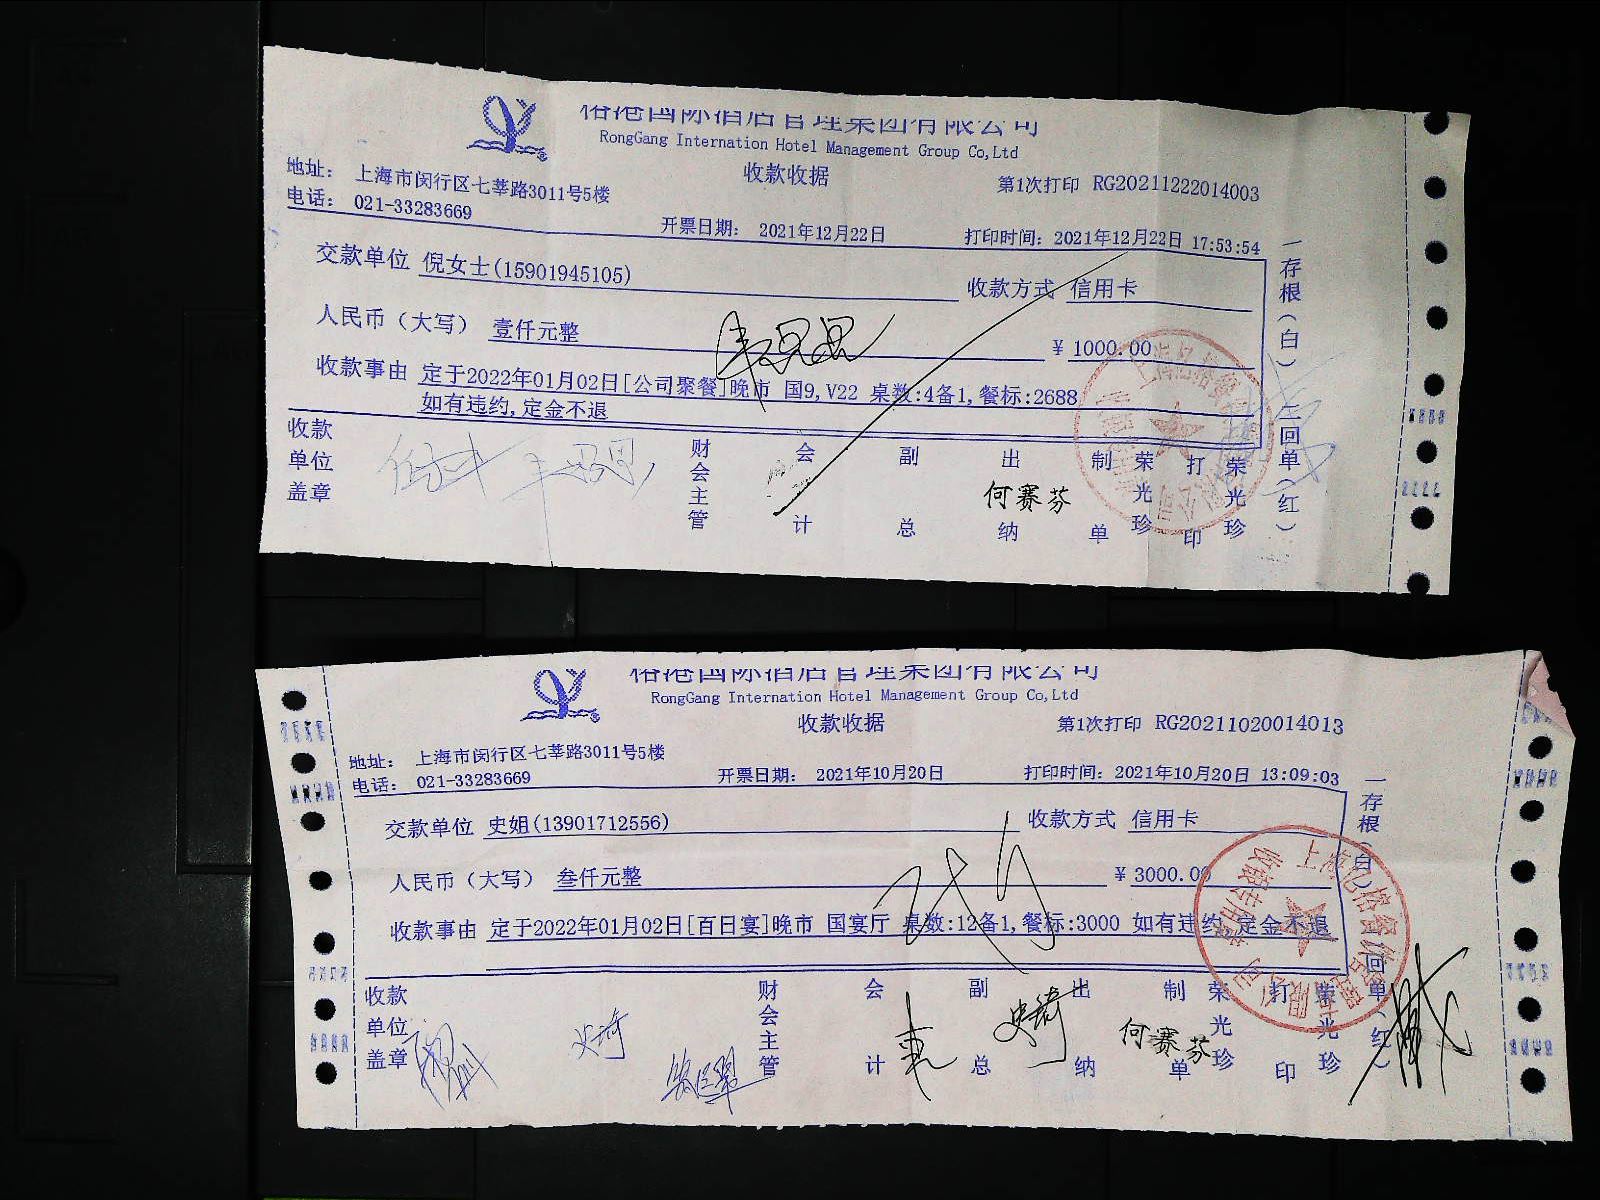 榕港国际酒店管理集团有限公司
RongGang Internation Hotel Management Group Co,Ltd
收款收据
第1次打印 RG20211222014003
地址： 上海市闵行区七莘路3011号5楼
电话： 021-33283669
开票日期： 2021年12月22日 打印时间：2021年12月22日 17:53:54
交款单位 倪女士(15901945105) 收款方式 信用卡
人民币（大写） 壹仟元整 ¥ 1000.00
收款事由 定于2022年01月02日[公司聚餐]晚市 国9,V22 桌数:4备1,餐标:2688
如有违约,定金不退
收款单位盖章 财会主管 会计 副总 出纳 何赛芬 制单 荣光珍 打印 荣光珍
一存根（白） 二回单（红）
榕港国际酒店管理集团有限公司
RongGang Internation Hotel Management Group Co,Ltd
收款收据
第1次打印 RG20211020014013
地址： 上海市闵行区七莘路3011号5楼
电话： 021-33283669
开票日期： 2021年10月20日 打印时间：2021年10月20日 13:09:03
交款单位 史姐(13901712556) 收款方式 信用卡
人民币（大写） 叁仟元整 ¥ 3000.00
收款事由 定于2022年01月02日[百日宴]晚市 国宴厅 桌数:12备1,餐标:3000 如有违约,定金不退
收款单位盖章 财会主管 会计 副总 史琦 出纳 何赛芬 制单 荣光珍 打印 荣光珍
史琦
一存根（白） 二回单（红）